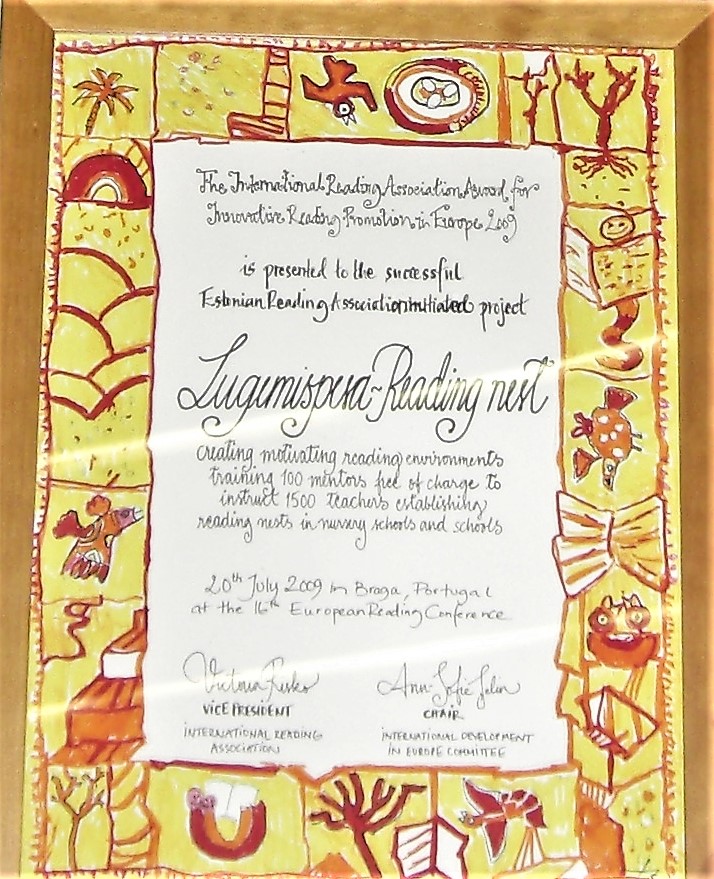 The International Reading Association Award for
Innovative Reading Promotion in Europe 2009
is presented to the successful
Estonian Reading Association initiated project
Lugemispesa~Reading nest
creating motivating reading environments
training 100 mentors free of charge to
instruct 1500 teachers establishing
reading nests in nursery schools and schools
20th July 2009 in Braga, Portugal
at the 16th European Reading Conference
Victoria Risko Ann-Sofie Selin
VICE PRESIDENT CHAIR
INTERNATIONAL READING INTERNATIONAL DEVELOPMENT
ASSOCIATION IN EUROPE COMMITTEE